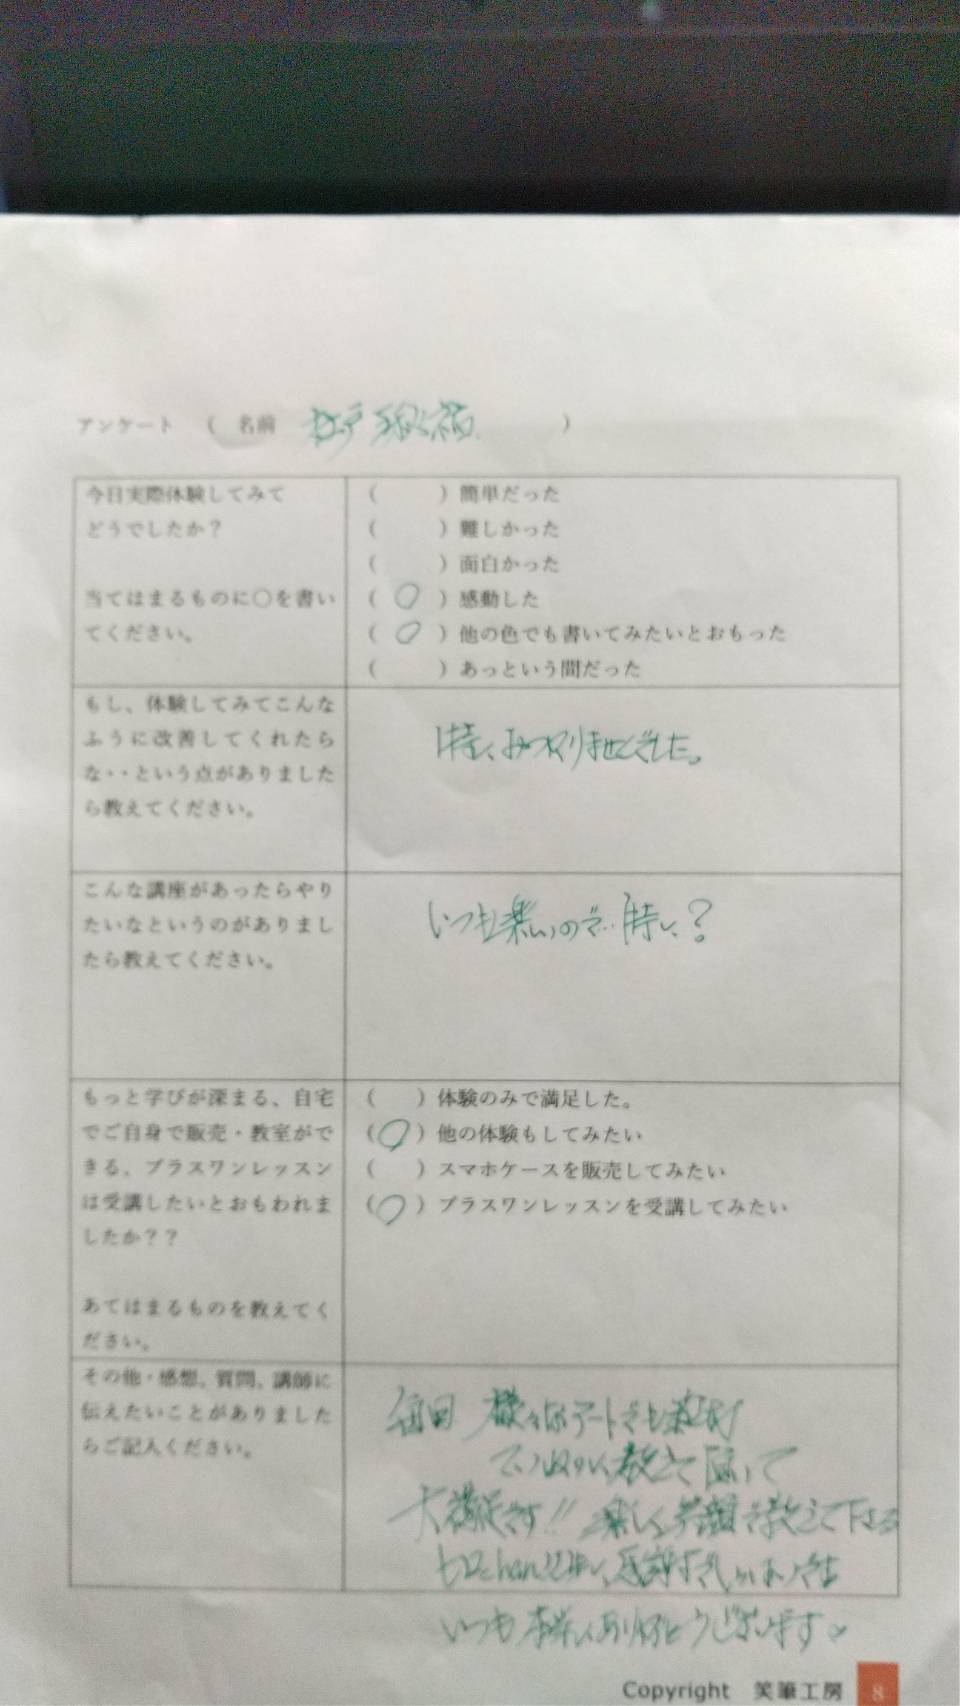 アンケート ( 名前 )
今日実際体験してみて
どうでしたか？
当てはまるものに○を書い
てください。
( ) 簡単だった
( ) 難しかった
( ) 面白かった
( ○ ) 感動した
( ○ ) 他の色でも書いてみたいとおもった
( ) あっという間だった
もし、体験してみてこんな
ふうに改善してくれたら
な‥という点がありました
ら教えてください。
特に みつかりませんでした。
こんな講座があったらやり
たいなというのがありまし
たら教えてください。
いつも楽しいので‥特に？
もっと学びが深まる、自宅
でご自身で販売・教室がで
きる、プラスワンレッスン
は受講したいとおもわれま
したか？？
あてはまるものを教えてく
ださい。
( ) 体験のみで満足した。
(○) 他の体験もしてみたい
( ) スマホケースを販売してみたい
(○) プラスワンレッスンを受講してみたい
その他・感想、質問、講師に
伝えたいことがありました
らご記入ください。
毎回 様々なアートでも
教えて頂いて
大満足です!! 楽しく笑顔で教えて下さる
いつも ありがとうございます
Copyright 笑筆工房 8